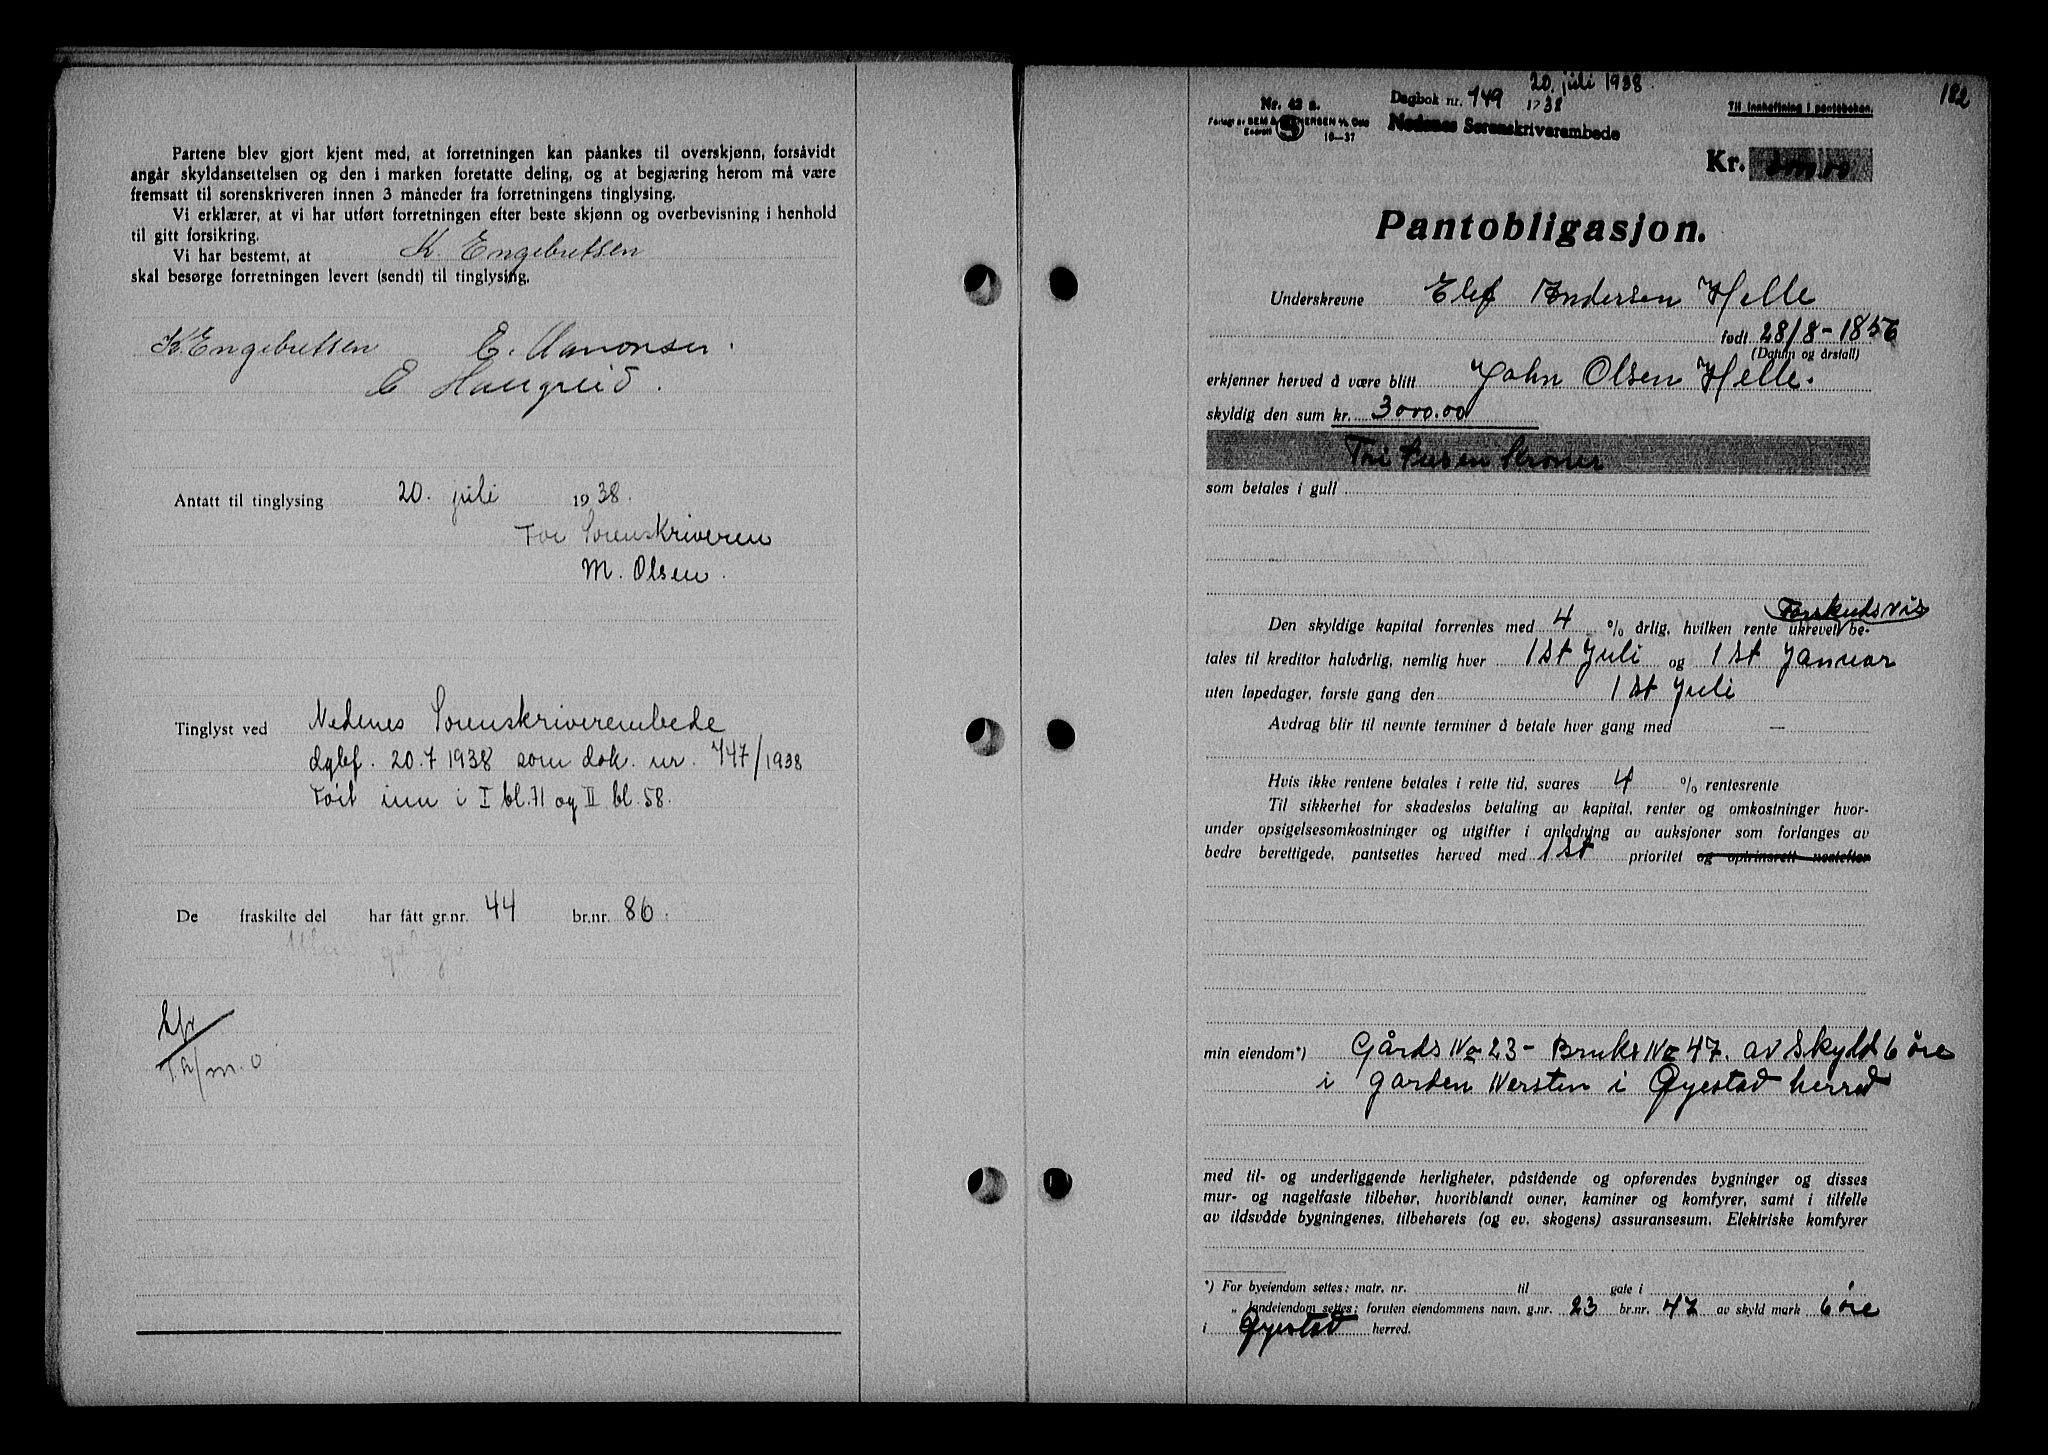 Partene blev gjort kjent med, at forretningen kan påankes til overskjønn, forsåvidt
angår skyldansettelsen og den i marken foretatte deling, og at begjæring herom må være
fremsatt til sorenskriveren innen 3 måneder fra forretningens tinglysing.
Vi erklærer, at vi har utført forretningen efter beste skjønn og overbevisning i henhold
til gitt forsikring.
Vi har bestemt, at K. Engebretsen
skal besørge forretningen levert (sendt) til tinglysing.
K. Engebretsen E. Aanonsen.
E Haugreid.
Antatt til tinglysing 20. juli 1938.
For Sorenskriveren
M. Olsen.
Tinglyst ved Nedenes Sorenskriverembede
dgbf. 20.7 1938 som dok. nr. 747/1938
Ført inn i I bl. 71 og II bl. 58.
De fraskilte del har fått gr.nr. 44 br.nr. 86
182
20. juli 1938.
Nr. 42 a. Dagbok nr. 749 1938 Til innheftning i pantoboken.
Nedenes Sorenskriverembede
10—37
Kr.
Pantobligasjon.
Underskrevne Elef Andersen Helle
født 28/8-1856
(Datum og årstall)
erkjenner herved å være blitt John Olsen Helle.
skyldig den sum kr. 3000.00
Tri Tusen Kroner
som betales i gull
Forskudsvis
Den skyldige kapital forrentes med 4 % årlig, hvilken rente ukrevet be-
tales til kreditor halvårlig, nemlig hver 1st Juli og 1st Januar
uten løpedager, første gang den 1st Juli
Avdrag blir til nevnte terminer å betale hver gang med —
Hvis ikke rentene betales i rette tid, svares 4 % rentesrente
Til sikkerhet for skadesløs betaling av kapital, renter og omkostninger hvor-
under opsigelsesomkostninger og utgifter i anledning av auksjoner som forlanges av
bedre berettigede, pantsettes herved med 1st prioritet og optrinsrett nestefter
min eiendom*) Gårds No 23 - Bruks No 47. av Skyld 6 øre
i garden Nersten i Øyestad herred
med til- og underliggende herligheter, påstående og opførendes bygninger og disses
mur- og nagelfaste tilbehør, hvoriblandt ovner, kaminer og komfyrer, samt i tilfelle
av ildsvåde bygningenes, tilbehørets (og ev. skogens) assuransesum. Elektriske komfyrer
*) For byeiendom settes: matr. nr. til gate i
„ landeiendom settes: foruten eiendommens navn, g.nr. 23 br.nr. 47 av skyld mark 6 øre
i Øyestad herred.